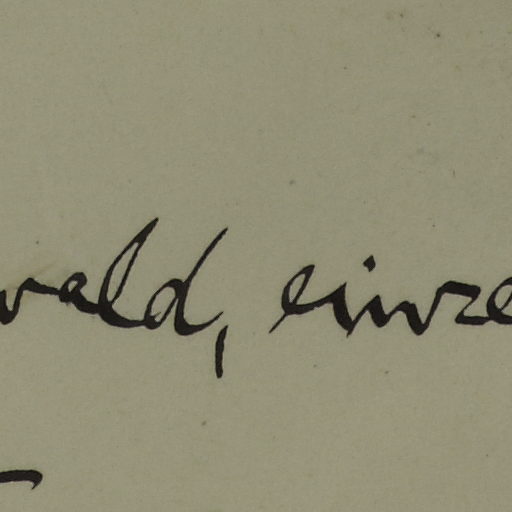 wald, einze